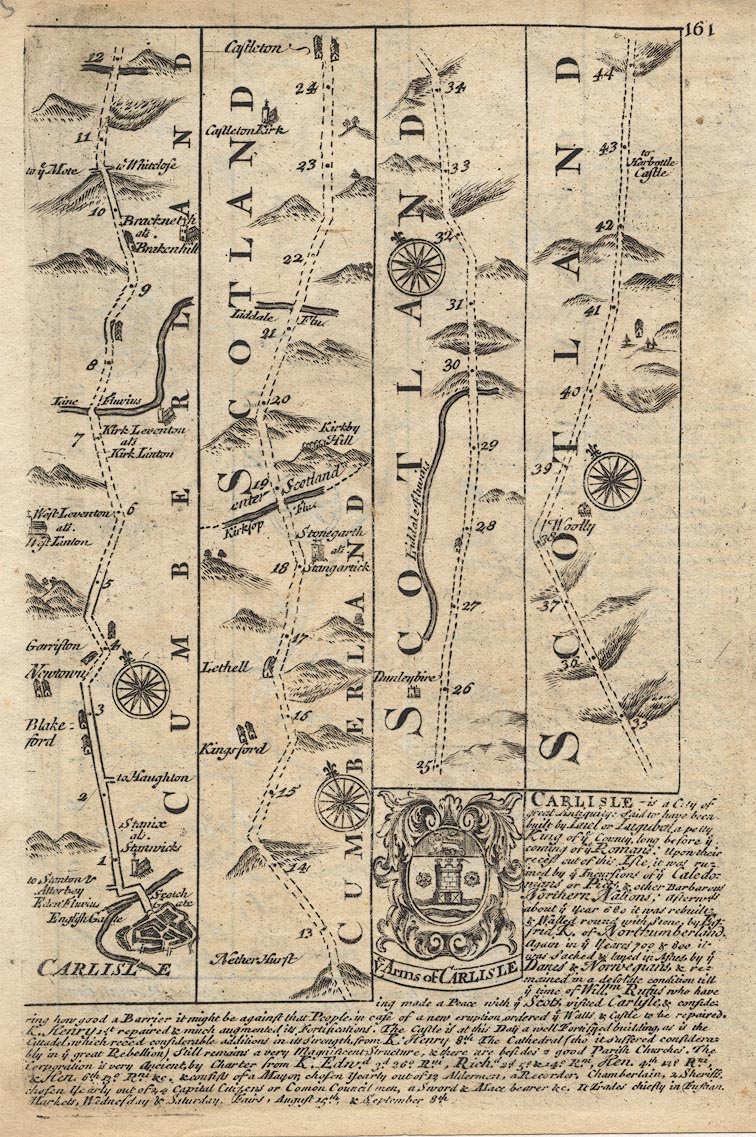 161
12
11
to yͤ Mote
to Whiteclose
10
Bracknethh
als.
Brakenhill
9
8
Line Fluvius
Kirk Leventon
als
Kirk Linton
7
West Leventon
als.
West Linton
6
5
Garriston
4
Newtown
3
Blake-
ford
to Haughton
2
Stanix
als.
Stanwicks
1
to Stanton &
Atterbey
Eden Fluvius
English Gate
Scotch
ate
CARLISLE
CUMBERLAND
Castleton
24
Castleton Kirk
23
22
Liddale Flu.
21
20
Kirkby
Hill
19
enter Scotland
Kirksop Flu.
Stonegarth
als
Stangartick
18
17
Lethell
16
Kingsford
15
14
13
Nether Hurst
SCOTLAND
CUMBERLAND
34
33
32
31
30
29
28
Liddal of Fluvius
27
Dunleybire
26
25
SCOTLAND
yͤ Arms of CARLISLE
44
43
to
Harbottle
Castle
42
41
40
39
Woolly
38
37
36
35
SCOTLAND
CARLISLE is a City of
great Antiquity: Said to have been
built by Luel or Lugubal, a petty
King of yͤ County, long before yͤ
coming of yͤ Romans: Upon their
recess out of this Isle, it was ru-
ined by yͤ Incursions of yͤ Caledo-
nians or Picts, & other Barbarous
Northern Nations; afterwards
about yͤ Year 680 it was rebuilt
& Walled round with Stone, by Eg-
frid, K. of Northumberland.
Again in yͤ Yeares 700 & 800 it
was Sacked & layed in Ashes by yͤ
Danes & Norwegians & re-
mained in a desolate condition till
yͤ time of Willᵐ Rufus who have
ing made a Peace with yͤ Scots visited Carlyle, & conside-
ring how good a Barrier it might be against that People in case of a new eruption, ordered yͤ Walls & Castle to be repaired.
K. Henry 1ˢᵗ repaired & much augmented its Fortifications. The Castle is at this Day a well Fortifyed building, as is the
Citadel, which reced considerable additions in its Strength, from K. Henry 8ᵗʰ The Cathedral (tho it suffered considera-
bly in yͤ great Rebellion) Still remains a very Magnificent Structure, & there are besides 2 good Parish Churches. The
Corporation is very Ancient, by Charter from K. Edwᵈ 3ᵈ 26º Rⁿⁱ, Rich. 2ᵈ 5º & 14º Rⁿⁱ, Hen. 4ᵗʰ 12º Rⁿⁱ,
& Hen. 6ᵗʰ 13º Rⁿⁱ &c. & consists of a Mayor chosen Yearly out of 12 Aldermen, a Recorder, Chamberlain, 2 Sheriffs,
chosen Yearly out of 24 Capital Citizens or Comon Council men, a Sword & Mace bearer &c. It Trades chiefly in Fustian.
Markets, Wednesday & Saturday. Fairs, August 15ᵗʰ & September 8ᵗʰ.